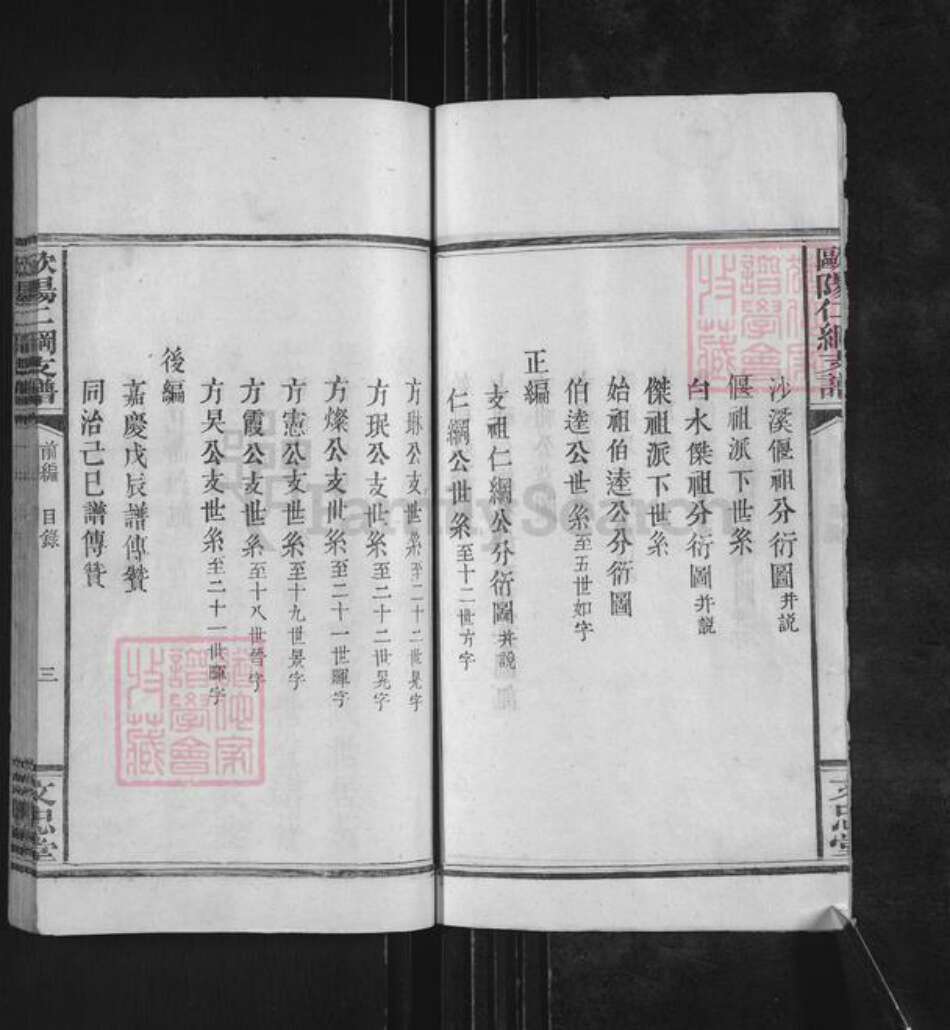 歐陽仁綱支譜
沙溪偃祖分衍圖并説
偃祖派下世系
白水傑祖分衍圖并説
傑祖派下世系
始祖伯逵公分衍圖
伯逵公世系至五世如字
正編
支祖仁綱公分衍圖并説
仁綱公世系至十二世方字
方琳公支世系至二十二世晃字
方珉公支世系至二十二世晃字
方燦公支世系至二十一世暉字
方憲公支世系至十九世景字
方霞公支世系至十八世晉字
方昊公支世系至二十一世暉字
後編
嘉慶戊辰譜傳贊
同治己巳譜傳贊
歐陽仁綱支譜
前編 目錄
三
文忠堂
文忠堂
譜學會
收藏
譜學會
收藏
FamilySearch